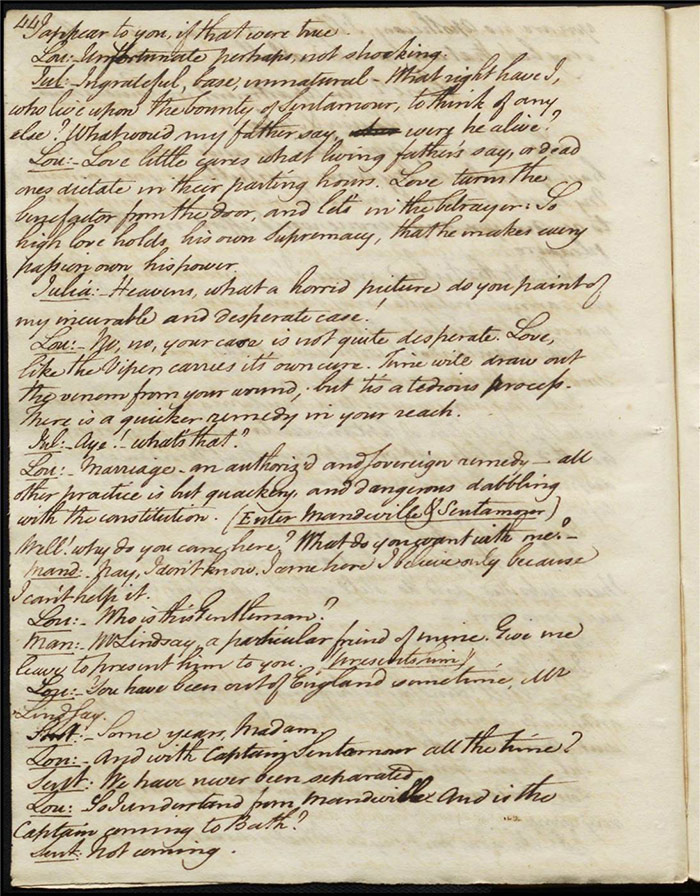 44
I appear to you, if that were true.
Lou:- Unfortunate perhaps, not shocking.
Jul:- Ingrateful, base, unnatural - What right have I,
who live upon the bounty of Sentamour, to think of any
else? What would my father say, were he alive?
Lou:- Love little cares what living father's say, or dead
ones dictate in their parting hours. Love turns the
benefactor from the door, and let's in the betrayer: So
high love holds, his own Supremacy, that he makes every
passion own his power.
Julia:- Heavens, what a horrid picture do you paint of
my incurable and desperate case!
Lou:- No, no, your case is not quite desperate. Love,
like the Viper carries its own cure. Time will draw out
the venom from your wound, but tis a tedious process.
There is a quicker remedy in your reach.
Jul:- Aye! - what's that?
Lou:- Marriage - an authoriz'd and sovereign remedy - all
other practice is but quackery, and dangerous dabbling
with the constitution. (Enter Mandeville & Sentamour)
Well! why do you come here? What do you want with me? -
Mand: Pray, I don't know, I came here I believe only because
I can't help it.
Lou:- Who is this Gentleman?
Man:- Mr Lindsay, a particular friend of mine. Give me
leave to present him to you. (presents him)
Lou:- You have been out of England sometime, Mr
Lindsay.
Sent:- Some years, Madam,
Lou:- And with Captain Sentamour all the time?
Sent: We have never been separated.
Lou: So I understand from Mandeville. And is the
Captain coming to Bath?
Sent: Not coming.